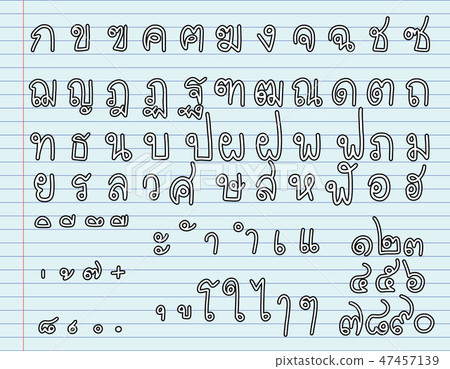 ก ข ฃ ค ฅ ฆ ง จ ฉ ช ซ
ฌ ญ ฎ ฏ ฐ ฑ ฒ ณ ด ต ถ
ท ธ น บ ป ผ ฝ พ ฟ ภ ม
ย ร ล ว ศ ษ ส ห ฬ อ ฮ
ิ ี ึ ื
ะ ั า ำ เ แ
๑๒๓
่ ้ ๊ ๋
๔๕๖
ุ ู โ ใ ไ ๅ ๆ
๗๘๙๐
47457139